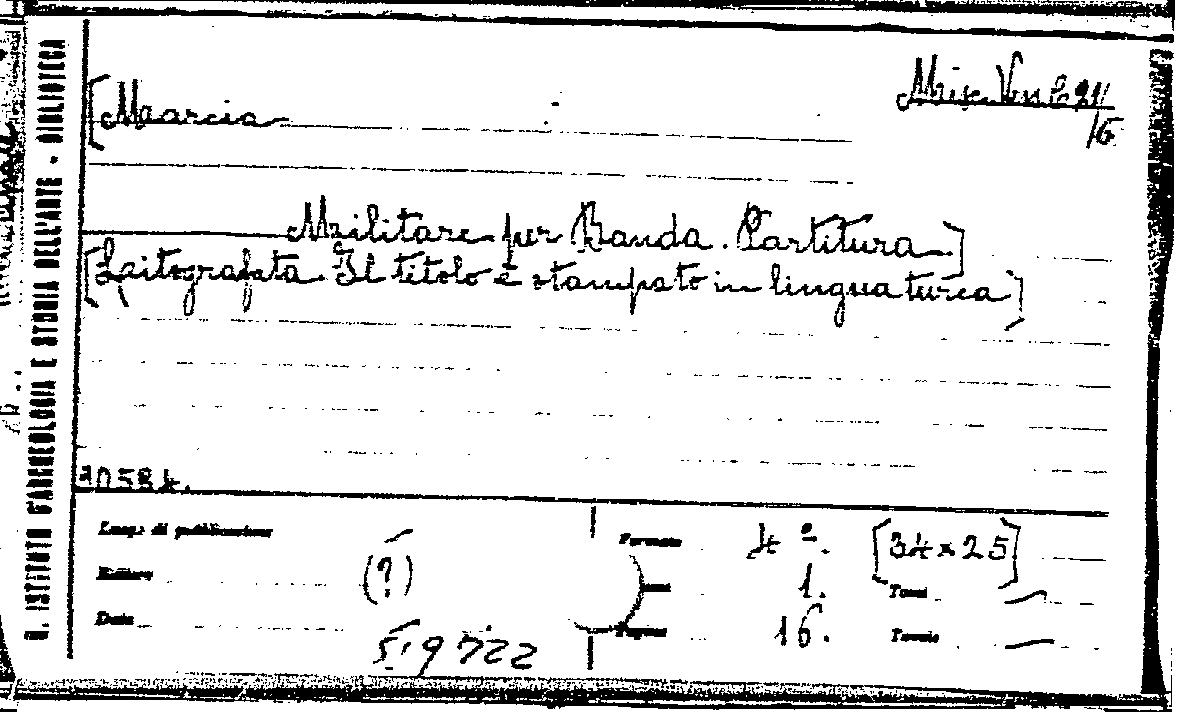 R. ISTITUTO D'ARCHEOLOGIA E STORIA DELL'ARTE - BIBLIOTECA
Misc. Ven. C 21/6
[Marcia
Militare per Banda. Partitura]
[Litografata. Il titolo è stampato in lingua turca]
30584.
Luogo di pubblicazione
Formato 4º. [34 x 25]
Editore (?)
1. Tomi —
Data
Pagine 16. Tavole —
519722